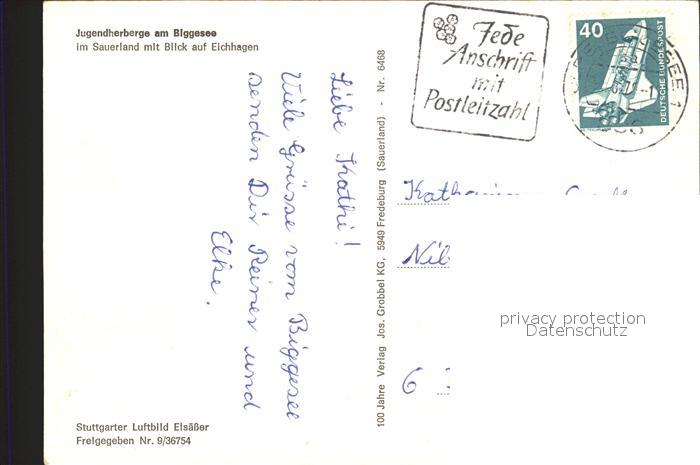 Jugendherberge am Biggesee
im Sauerland mit Blick auf Eichhagen
Liebe Kathi!
Viele Grüsse vom Biggesee
senden Dir Reiner und
Elke.
Stuttgarter Luftbild Elsäßer
Freigegeben Nr. 9/36754
100 Jahre Verlag Jos. Grobbel KG, 5949 Fredeburg (Sauerland) - Nr. 6468
Jede
Anschrift
mit
Postleitzahl
40
DEUTSCHE BUNDESPOST
Nil
6
privacy protection
Datenschutz